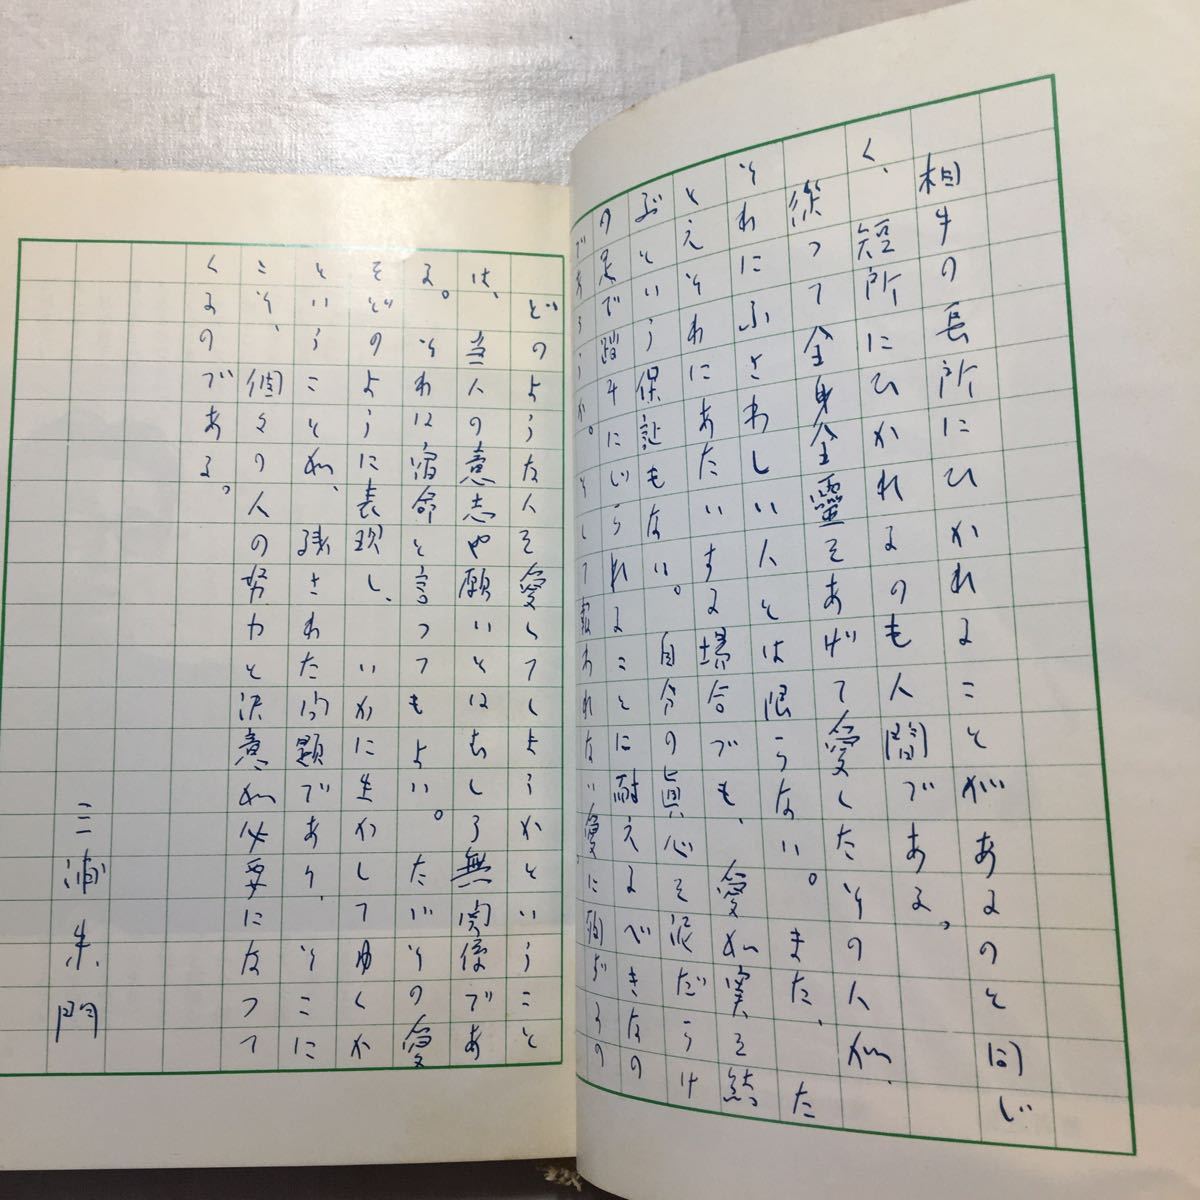 相手の長所にひかれることがあるのと同じ
く、短所にひかれるのも人間である。
従って全身全靈をあげて愛したその人が、
それにふさわしい人とは限らない。また、た
とえそれにあたいする場合でも、愛が実を結
ぶという保証もない。自分の眞心を泥だらけ
の足で踏みにじられることに耐えるべきなの
であろうか。そして報われない愛に殉ずるの
どのような人を愛してしまうかということ
は、当人の意志や願いとはむしろ無関係であ
る。それは宿命と言ってもよい。ただその愛
をどのように表現し、いかに生かしてゆくか
ということが、残された問題であり、そこに
こそ、個々の人の努力と決意が必要になって
くるのである。
三浦朱門